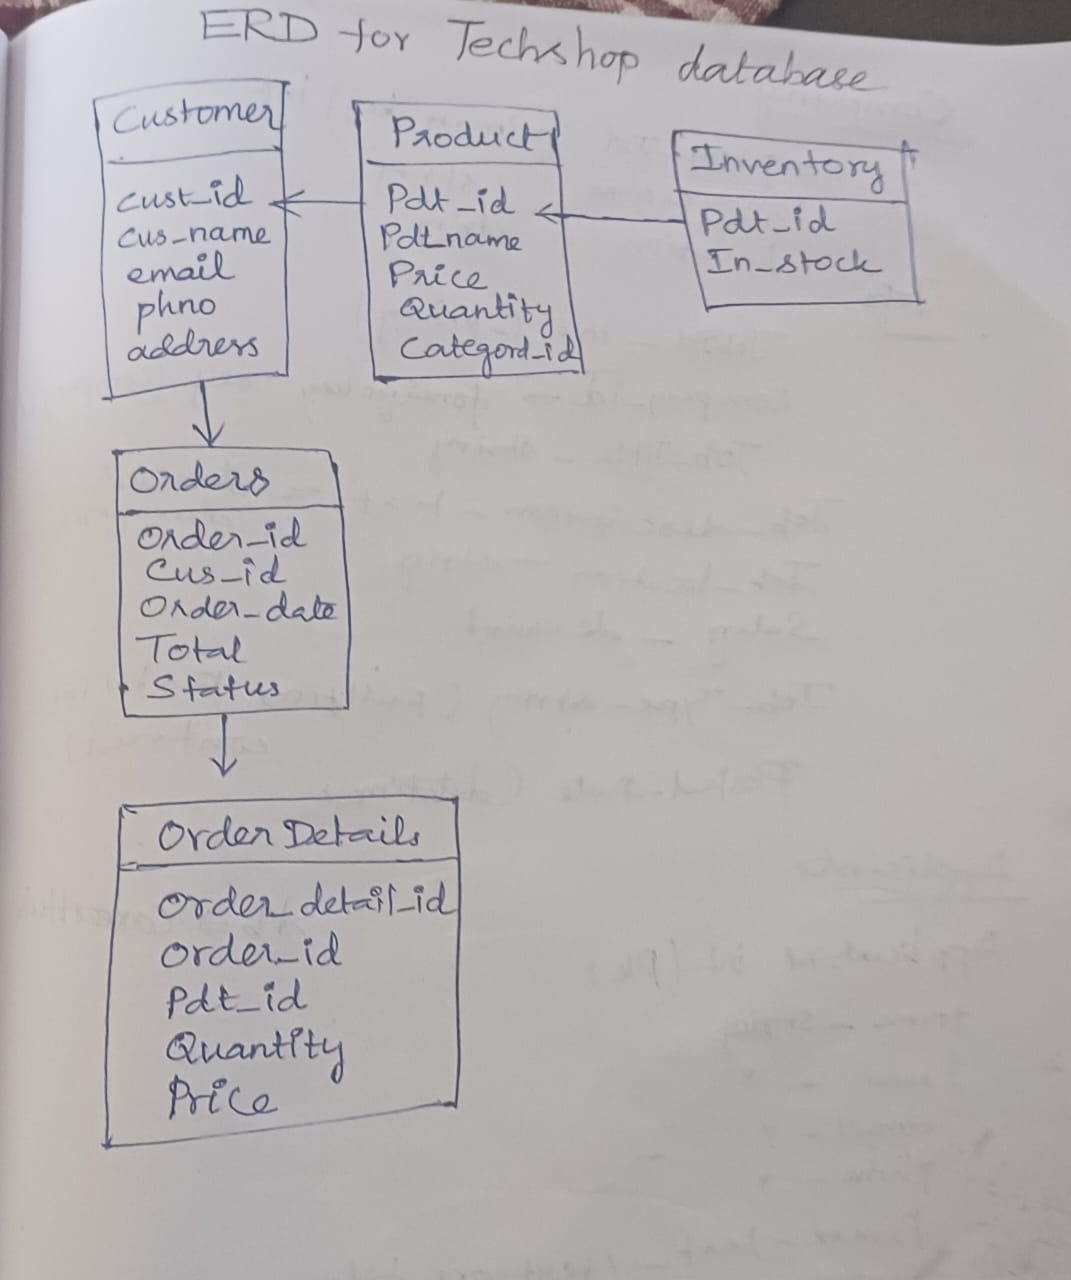 ERD for Techshop database
Customer
cust_id
cus_name
email
phno
address
Product
Pdt_id
Pdt_name
Price
Quantity
Categord_id
Inventory
Pdt_id
In_stock
Orders
Order_id
Cus_id
Order_date
Total
Status
Order Details
Order_detail_id
Order_id
Pdt_id
Quantity
Price